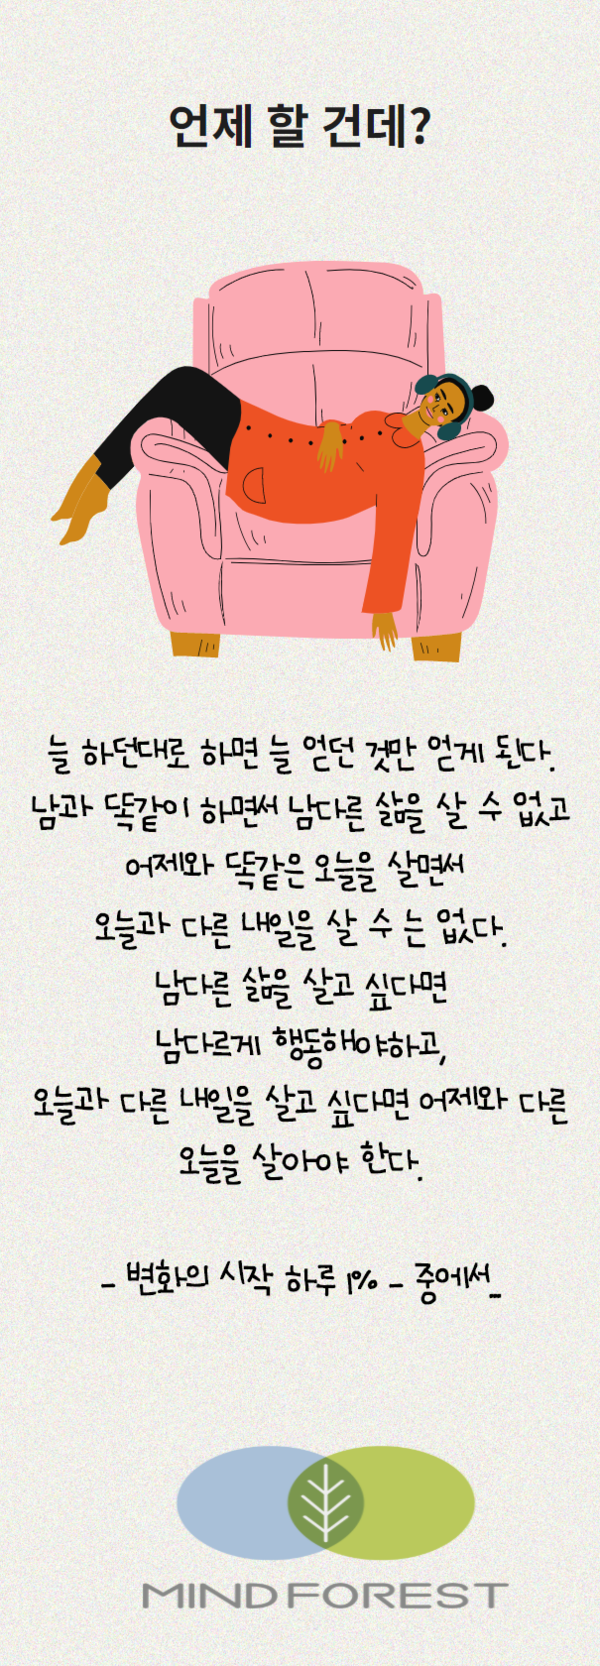 언제 할 건데?
늘 하던대로 하면 늘 얻던 것만 얻게 된다.
남과 똑같이 하면서 남다른 삶을 살 수 없고
어제와 똑같은 오늘을 살면서
오늘과 다른 내일을 살 수 는 없다.
남다른 삶을 살고 싶다면
남다르게 행동해야하고,
오늘과 다른 내일을 살고 싶다면 어제와 다른
오늘을 살아야 한다.
- 변화의 시작 하루 1% - 중에서...
MIND FOREST